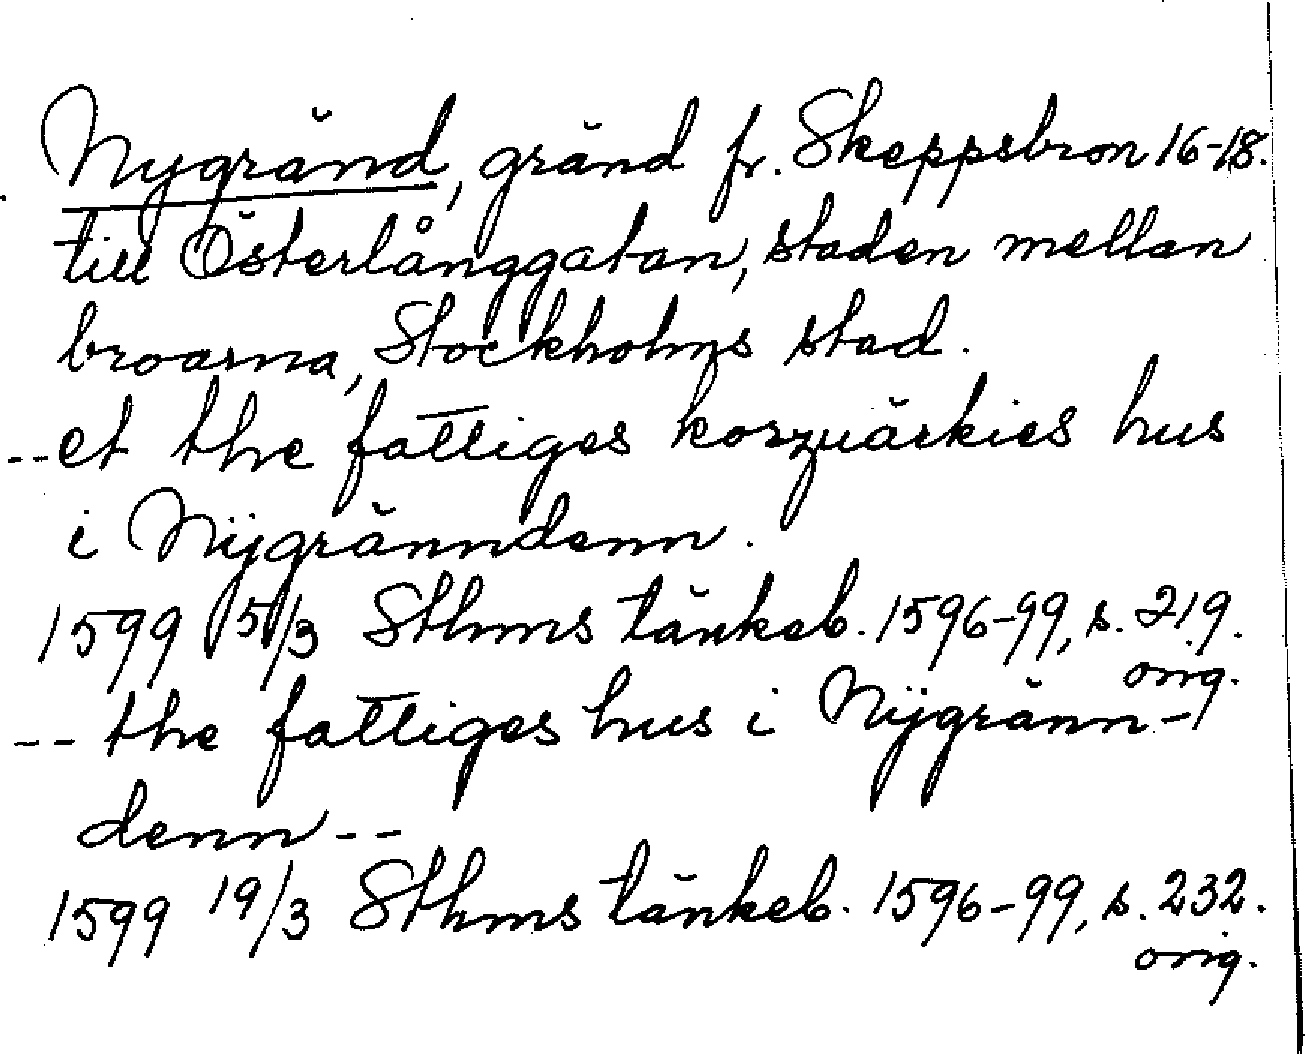 Nygränd, gränd fr. Skeppsbron 16-18.
till Österlånggatan, staden mellan
broarna, Stockholms stad.
--et the fattiges korszuärkies hus
i Nÿgränndenn.
1599 15/3 Sthms tänkeb. 1596-99, s. 219.
orig.
-- the fattiges hus i Nÿgränn-
denn --
1599 19/3 Sthms tänkeb. 1596-99, s. 232.
orig.